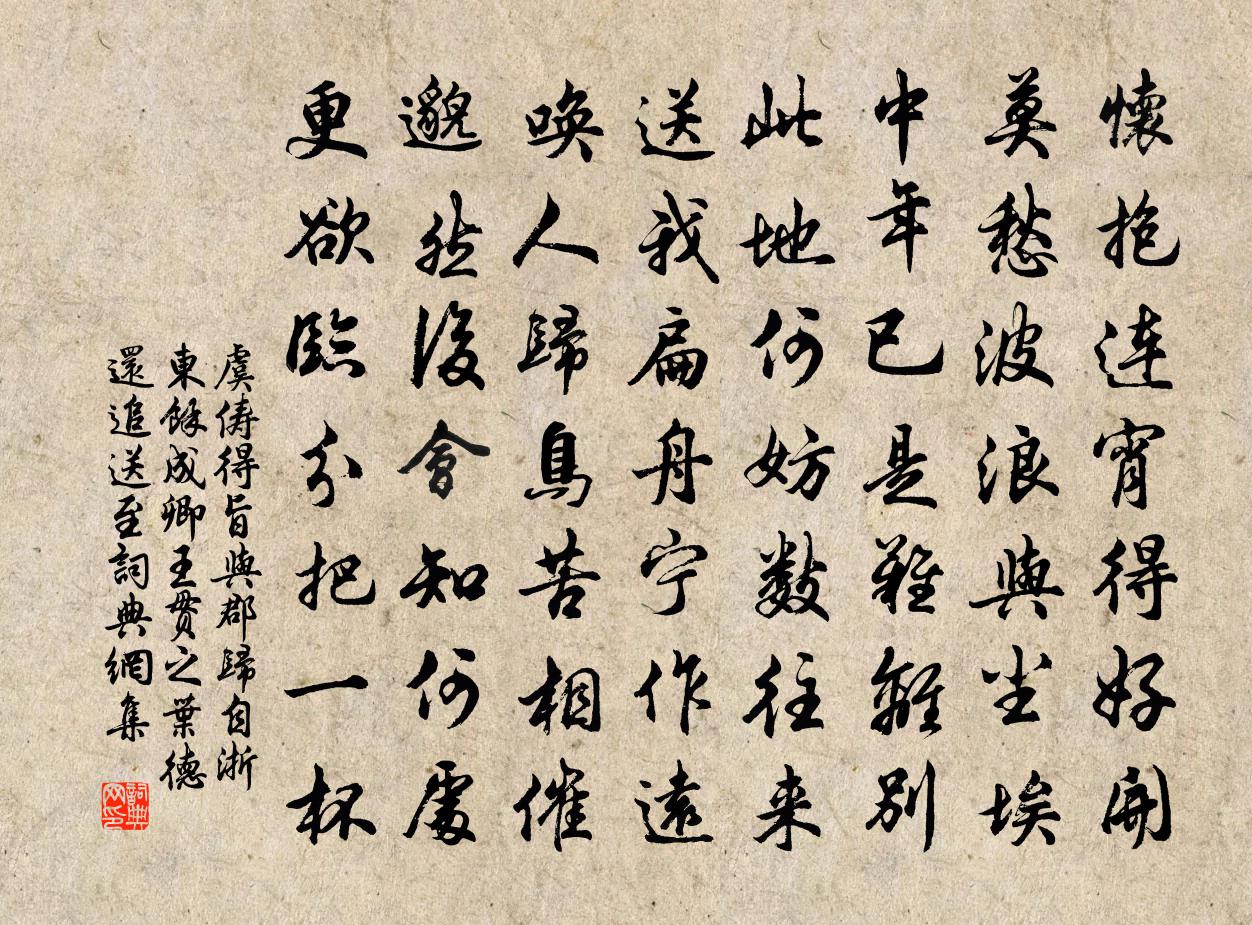 懷抱連宵得好開
莫愁波浪與尘埃
中年已是難離別
此地何妨數往来
送我扁舟宁作遠
喚人歸鳥苦相催
邈然後會知何處
更欲臨分把一杯
虞儔得旨與郡歸自浙
東餘成卿王貫之葉德
還追送至詞典網集
詞典网印